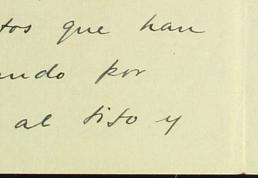 tos que han
ando por
al sito y